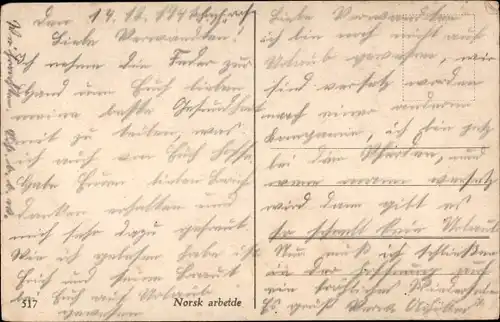 Den 14.12.194
Liebe Verwandten!
Ich nehme die Feder zur
Hand um Euch lieben
meine beste Gesundheit
mit zu teilen, was
ich auch von Euch hoffe.
Habe Euren lieben Brief
dankend erhalten und
mich sehr dazu gefreut.
Wie ich gelesen habe ist
Erich und seine Braut
bei Euch auf Urlaub
gewesen
517
Norsk arbeide
Liebe Verwandten
ich bin noch nicht auf
Urlaub gewesen, wir
sind versetz worden
nach einer anderen
Kompanie, ich bin jetz
bei den Pferden, und
wenn mann versetz
wird dann gibt es
so schnell kein Urlaub
Nun muß ich schließen
in der Hoffnung auch
ein fröhliches Wiedersehen
Es grüßt